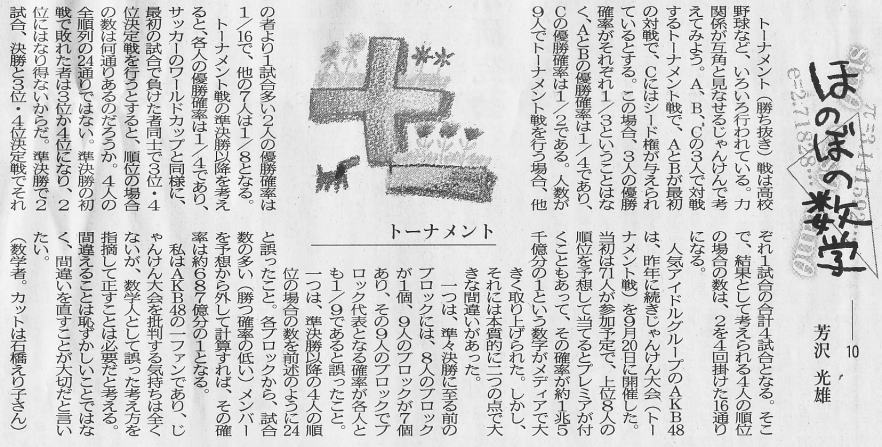 ほのぼの数学
π=3.141592
e=2.71828…
──10
芳沢 光雄
トーナメント（勝ち抜き）戦は高校
野球など、いろいろ行われている。力
関係が互角と見なせるじゃんけんで考
えてみよう。A、B、Cの3人で対戦
するトーナメント戦で、AとBが最初
の対戦で、Cにはシード権が与えられ
ているとする。この場合、3人の優勝
確率がそれぞれ1/3ということはな
く、AとBの優勝確率は1/4であり、
Cの優勝確率は1/2である。人数が
9人でトーナメント戦を行う場合、他
の者より1試合多い2人の優勝確率は
1/16で、他の7人は1/8となる。
トーナメント戦の準決勝以降を考え
ると、各人の優勝確率は1/4であり、
サッカーのワールドカップと同様に、
最初の試合で負けた者同士で3位・4
位決定戦を行うとすると、順位の場合
の数は何通りあるのだろうか。4人の
全順列の24通りではない。準決勝の初
戦で敗れた者は3位か4位になり、2
位にはなり得ないからだ。準決勝で2
試合、決勝と3位・4位決定戦でそれ
トーナメント
ぞれ1試合の合計4試合となる。そこ
で、結果として考えられる4人の順位
の場合の数は、2を4回掛けた16通り
になる。
人気アイドルグループのAKB48
は、昨年に続きじゃんけん大会（トー
ナメント戦）を9月20日に開催した。
当初は71人が参加予定で、上位8人の
順位を予想して当てるとプレミアが付
くこともあって、その確率が約1兆5
千億分の1という数字がメディアで大
きく取り上げられた。しかし、
それには本質的に二つの点で大
きな間違いがあった。
一つは、準々決勝に至る前の
ブロックには、8人のブロック
が1個、9人のブロックが7個
あり、その9人のブロックでブ
ロック代表となる確率が各人と
も1/9であると誤ったこと。
一つは、準決勝以降の4人の順
位の場合の数を前述のように24
と誤ったこと。各ブロックから、試合
数の多い（勝つ確率の低い）メンバー
を予想から外して計算すれば、その確
率は約687億分の1となる。
私はAKB48の一ファンであり、じ
ゃんけん大会を批判する気持ちは全く
ないが、数学人として誤った考え方を
指摘して正すことは必要だと考える。
間違えることは恥ずかしいことではな
く、間違いを直すことが大切だと言い
たい。
（数学者。カットは石橋えり子さん）